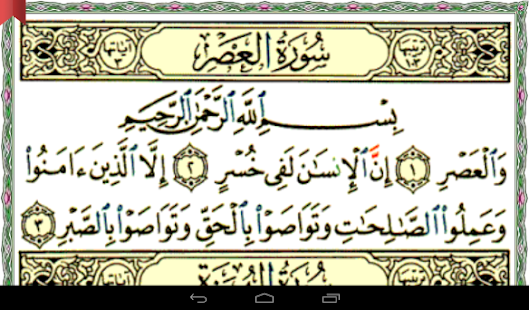 ترتيبها ١٠٣ سُورَةُ الْعَصْرِ آياتها ٣
بِسْمِ ٱللَّهِ ٱلرَّحْمَٰنِ ٱلرَّحِيمِ
وَٱلْعَصْرِ ١ إِنَّ ٱلْإِنسَٰنَ لَفِى خُسْرٍ ٢ إِلَّا ٱلَّذِينَ ءَامَنُوا۟
وَعَمِلُوا۟ ٱلصَّٰلِحَٰتِ وَتَوَاصَوْا۟ بِٱلْحَقِّ وَتَوَاصَوْا۟ بِٱلصَّبْرِ ٣
ترتيبها سُورَةُ الْهُمَزَةِ آياتها